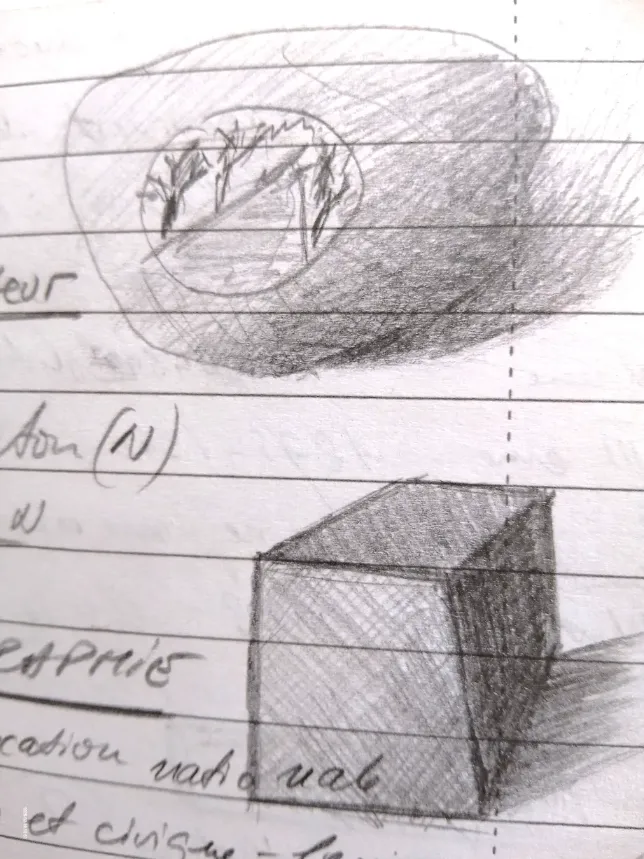 eur
ton (N)
N
RAPHIE
cation national
et civique -